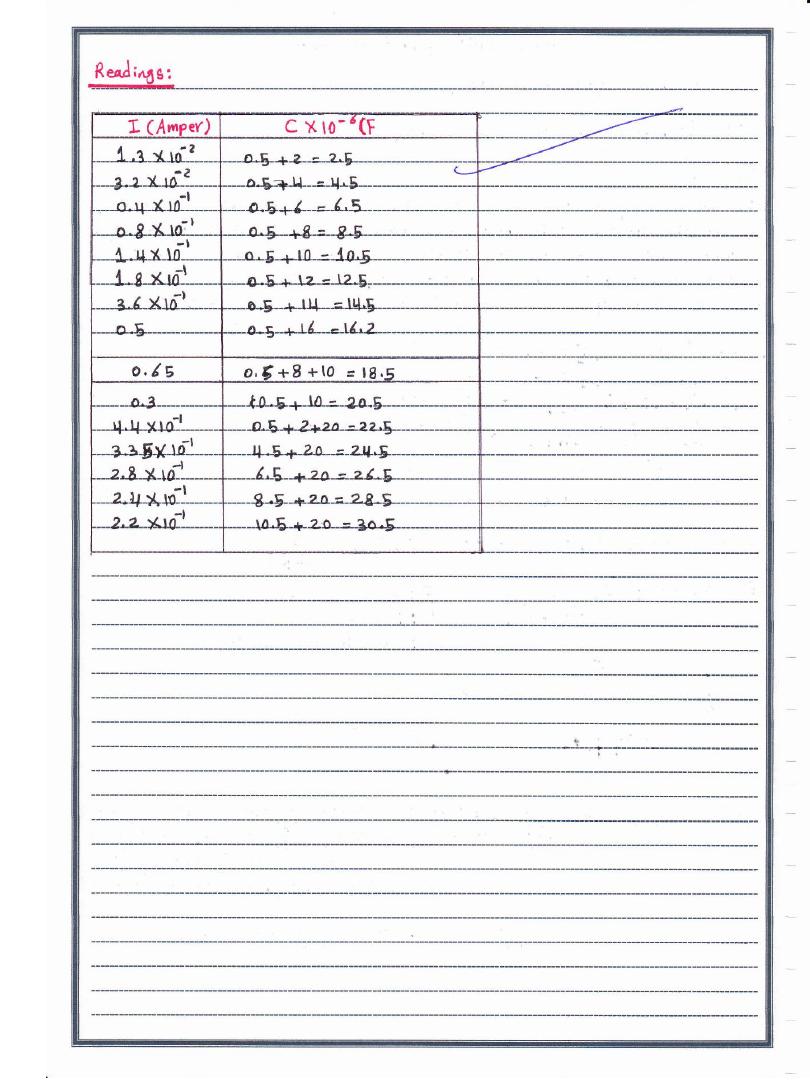 Readings:
I (Amper) C X 10⁻⁶(F
1.3 X 10⁻² 0.5 + 2 = 2.5
3.2 X 10⁻² 0.5 + 4 = 4.5
0.4 X 10⁻¹ 0.5 + 6 = 6.5
0.8 X 10⁻¹ 0.5 + 8 = 8.5
1.4 X 10⁻¹ 0.5 + 10 = 10.5
1.8 X 10⁻¹ 0.5 + 12 = 12.5
3.6 X 10⁻¹ 0.5 + 14 = 14.5
0.5 0.5 + 16 = 16.2
0.65 0.5 + 8 + 10 = 18.5
0.3 10.5 + 10 = 20.5
4.4 X 10⁻¹ 0.5 + 2 + 20 = 22.5
3.35 X 10⁻¹ 4.5 + 20 = 24.5
2.8 X 10⁻¹ 6.5 + 20 = 26.5
2.4 X 10⁻¹ 8.5 + 20 = 28.5
2.2 X 10⁻¹ 10.5 + 20 = 30.5